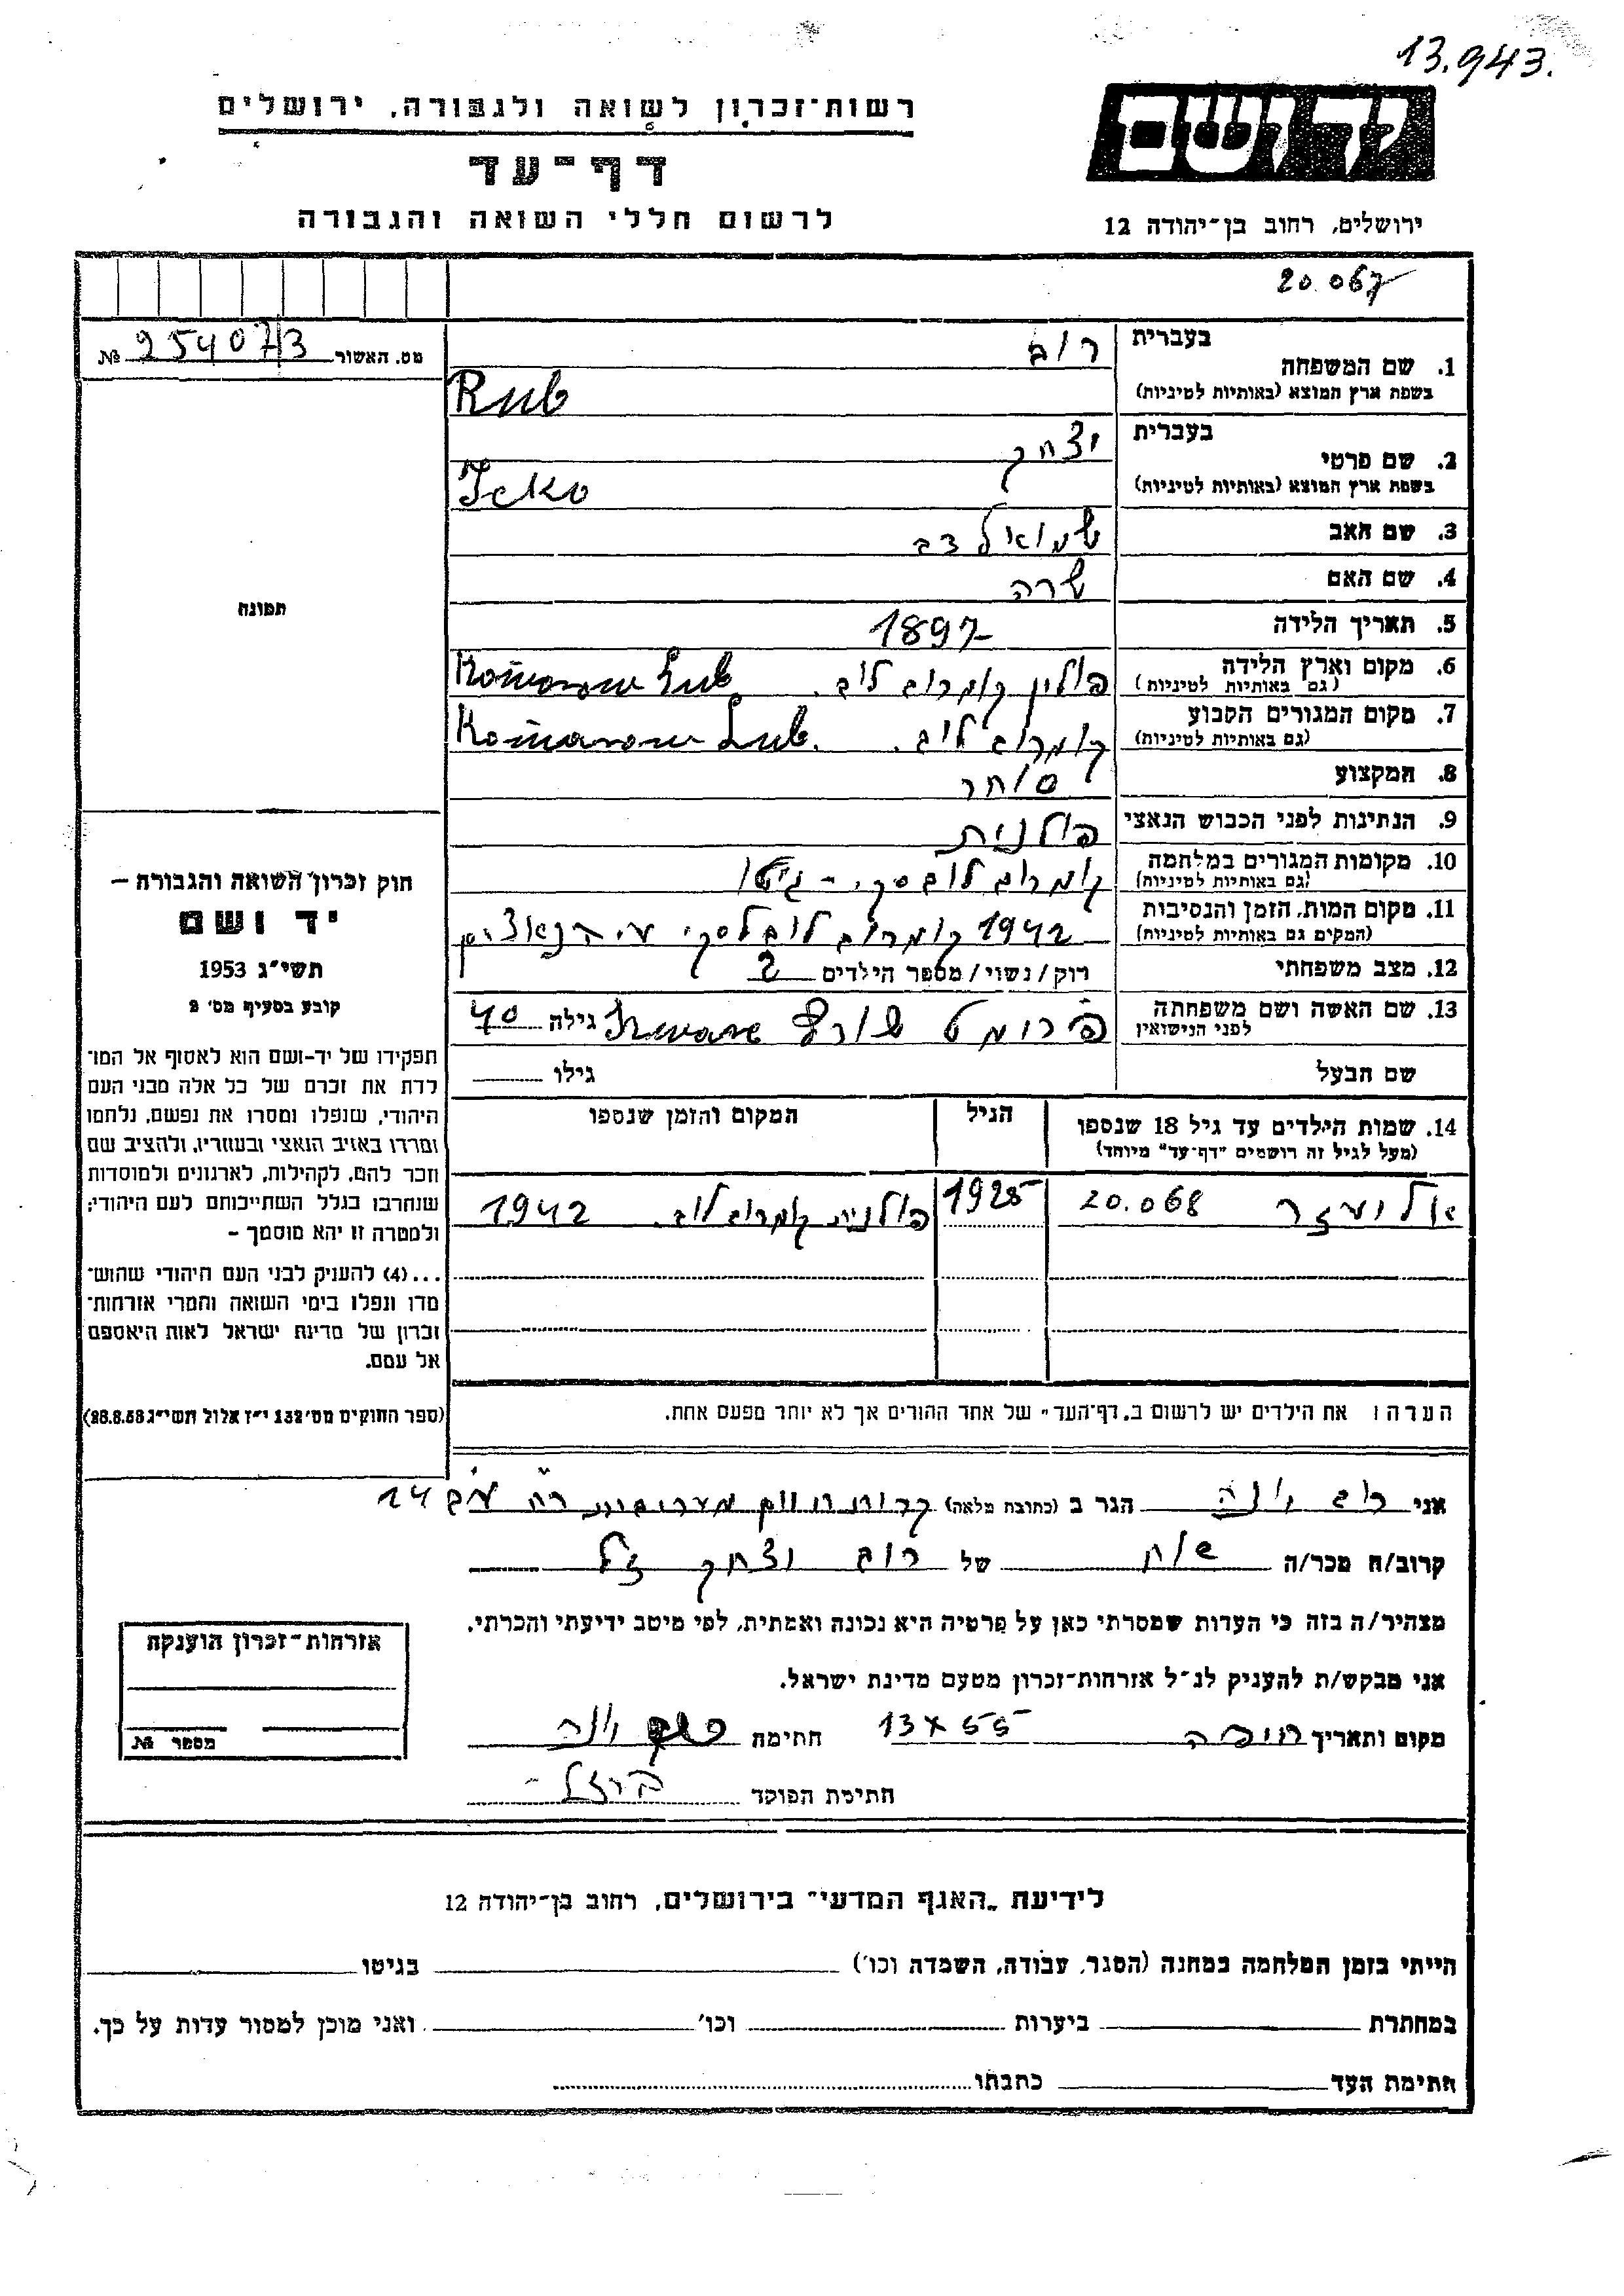 13.943.
רשות־זכרון לשואה ולגבורה, ירושלים
דף־עד
לרשום חללי השואה והגבורה
יד ושם
ירושלים, רחוב בן־יהודה 12
20.067
מס. האשור 254073 №
1. שם המשפחה בעברית רוב
בשפת ארץ המוצא (באותיות לטיניות) Rub
2. שם פרטי בעברית יצחק
בשפת ארץ המוצא (באותיות לטיניות) Icko
3. שם האב שמואל דב
4. שם האם שרה
5. תאריך הלידה 1897
6. מקום וארץ הלידה פולין קומרוב לוב. Komarow Lub
(גם באותיות לטיניות)
7. מקום המגורים הקבוע קומרוב לוב. Komarow Lub.
(גם באותיות לטיניות)
8. המקצוע סוחר
9. הנתינות לפני הכבוש הנאצי פולנית
10. מקומות המגורים במלחמה קומרוב לובסקי - גיטו
(גם באותיות לטיניות)
11. מקום המות, הזמן והנסיבות 1942 קומרוב לובלסקי ע״י הנאצים
(המקום גם באותיות לטיניות)
12. מצב משפחתי רוק/נשוי/מספר הילדים 2
13. שם האשה ושם משפחתה פרומט שורץ גילה 40
לפני הנישואין
שם הבעל גילו
14. שמות הילדים עד גיל 18 שנספו הגיל המקום והזמן שנספו
(מעל לגיל זה רושמים "דף־עד" מיוחד)
אליעזר 20.068 1925 פולנית קומרוב לוב. 1942
הערה: את הילדים יש לרשום ב„דף־העד" של אחד ההורים אך לא יותר מפעם אחת.
תמונה
חוק זכרון השואה והגבורה —
יד ושם
תשי״ג 1953
קובע בסעיף מס׳ 2
תפקידו של יד־ושם הוא לאסוף אל המו־
לדת את זכרם של כל אלה מבני העם
היהודי, שנפלו ומסרו את נפשם, נלחמו
ומרדו באויב הנאצי ובעוזריו, ולהציב שם
וזכר להם, לקהילות, לארגונים ולמוסדות
שנחרבו בגלל השתייכותם לעם היהודי;
ולמטרה זו יהא מוסמך —
...(4) להעניק לבני העם היהודי שהוש־
מדו ונפלו בימי השואה והמרי אזרחות־
זכרון של מדינת ישראל לאות היאספם
אל עמם.
(ספר החוקים מס׳ 132 י״ז אלול תשי״ג 28.8.53)
אני רוב יונה הגר ב (כתובת מלאה) 14
קרוב/ה מכר/ה של רוב יצחק ז״ל
מצהיר/ה בזה כי העדות שמסרתי כאן על פרטיה היא נכונה ואמתית, לפי מיטב ידיעתי והכרתי.
אני מבקש/ת להעניק לנ״ל אזרחות־זכרון מטעם מדינת ישראל.
מקום ותאריך חיפה 13 X 55 חתימה רוב יונה
חתימת הפוקד
אזרחות־זכרון הוענקה
מספר №
לידיעת „האגף המדעי" בירושלים, רחוב בן־יהודה 12
הייתי בזמן המלחמה במחנה (הסגר, עבודה, השמדה וכו׳) בגיטו
במחתרת ביערות וכו׳ ואני מוכן למסור עדות על כך.
חתימת העד כתבתו